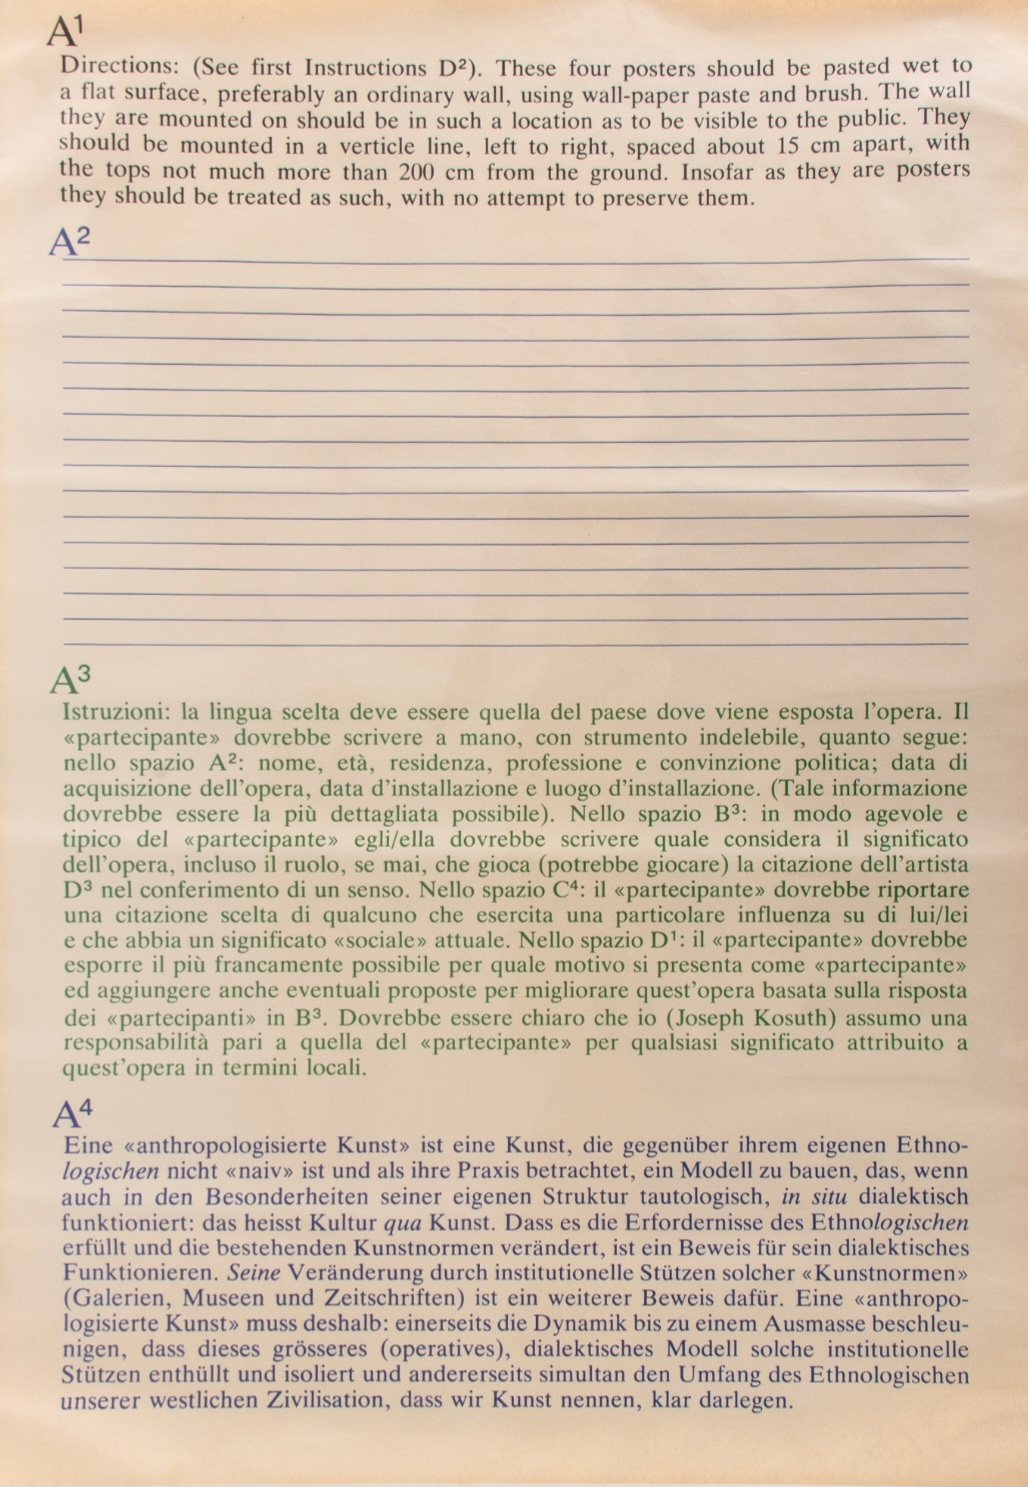 A¹
Directions: (See first Instructions D²). These four posters should be pasted wet to
a flat surface, preferably an ordinary wall, using wall-paper paste and brush. The wall
they are mounted on should be in such a location as to be visible to the public. They
should be mounted in a verticle line, left to right, spaced about 15 cm apart, with
the tops not much more than 200 cm from the ground. Insofar as they are posters
they should be treated as such, with no attempt to preserve them.
A²
A³
Istruzioni: la lingua scelta deve essere quella del paese dove viene esposta l'opera. Il
«partecipante» dovrebbe scrivere a mano, con strumento indelebile, quanto segue:
nello spazio A²: nome, età, residenza, professione e convinzione politica; data di
acquisizione dell'opera, data d'installazione e luogo d'installazione. (Tale informazione
dovrebbe essere la più dettagliata possibile). Nello spazio B³: in modo agevole e
tipico del «partecipante» egli/ella dovrebbe scrivere quale considera il significato
dell'opera, incluso il ruolo, se mai, che gioca (potrebbe giocare) la citazione dell'artista
D³ nel conferimento di un senso. Nello spazio C⁴: il «partecipante» dovrebbe riportare
una citazione scelta di qualcuno che esercita una particolare influenza su di lui/lei
e che abbia un significato «sociale» attuale. Nello spazio D¹: il «partecipante» dovrebbe
esporre il più francamente possibile per quale motivo si presenta come «partecipante»
ed aggiungere anche eventuali proposte per migliorare quest'opera basata sulla risposta
dei «partecipanti» in B³. Dovrebbe essere chiaro che io (Joseph Kosuth) assumo una
responsabilità pari a quella del «partecipante» per qualsiasi significato attribuito a
quest'opera in termini locali.
A⁴
Eine «anthropologisierte Kunst» ist eine Kunst, die gegenüber ihrem eigenen Ethno-
logischen nicht «naiv» ist und als ihre Praxis betrachtet, ein Modell zu bauen, das, wenn
auch in den Besonderheiten seiner eigenen Struktur tautologisch, in situ dialektisch
funktioniert: das heisst Kultur qua Kunst. Dass es die Erfordernisse des Ethnologischen
erfüllt und die bestehenden Kunstnormen verändert, ist ein Beweis für sein dialektisches
Funktionieren. Seine Veränderung durch institutionelle Stützen solcher «Kunstnormen»
(Galerien, Museen und Zeitschriften) ist ein weiterer Beweis dafür. Eine «anthropo-
logisierte Kunst» muss deshalb: einerseits die Dynamik bis zu einem Ausmasse beschleu-
nigen, dass dieses grösseres (operatives), dialektisches Modell solche institutionelle
Stützen enthüllt und isoliert und andererseits simultan den Umfang des Ethnologischen
unserer westlichen Zivilisation, dass wir Kunst nennen, klar darlegen.